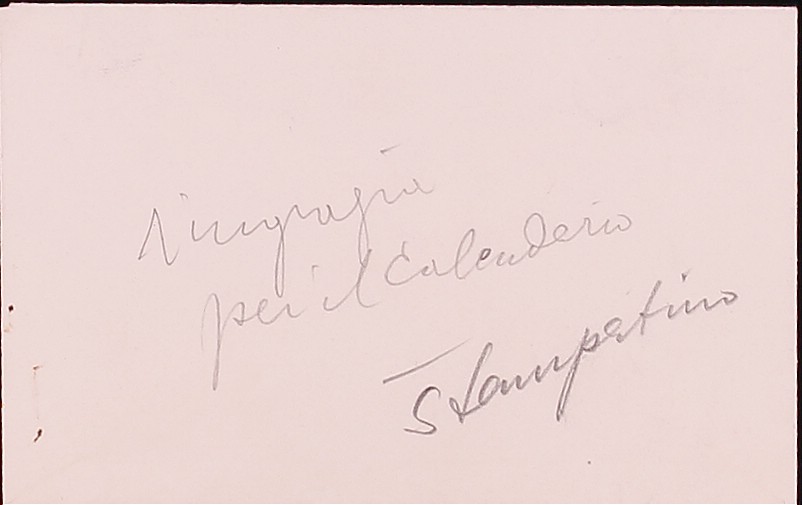 ringrazia
per il Calendario
Stampatino